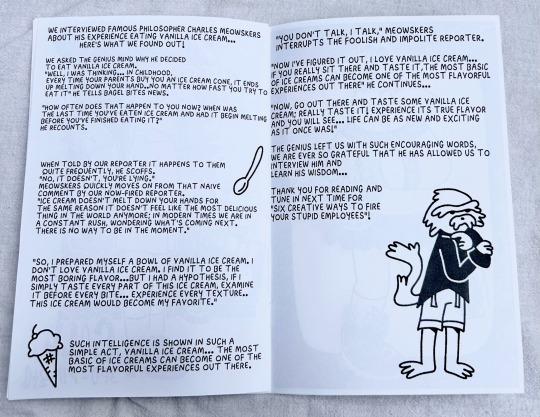 WE INTERVIEWED FAMOUS PHILOSOPHER CHARLES MEOWSKERS
ABOUT HIS EXPERIENCE EATING VANILLA ICE CREAM...
HERE'S WHAT WE FOUND OUT!
WE ASKED THE GENIUS MIND WHY HE DECIDED
TO EAT VANILLA ICE CREAM.
"WELL, I WAS THINKING... IN CHILDHOOD,
EVERY TIME YOUR PARENTS BUY YOU AN ICE CREAM CONE, IT ENDS
UP MELTING DOWN YOUR HAND..NO MATTER HOW FAST YOU TRY TO
EAT IT" HE TELLS BAGEL BITES NEWS.
"HOW OFTEN DOES THAT HAPPEN TO YOU NOW? WHEN WAS
THE LAST TIME YOU'VE EATEN ICE CREAM AND HAD IT BEGIN MELTING
BEFORE YOU'VE FINISHED EATING IT?"
HE RECOUNTS.
WHEN TOLD BY OUR REPORTER IT HAPPENS TO THEM
QUITE FREQUENTLY, HE SCOFFS.
"NO, IT DOESN'T, YOU'RE LYING."
MEOWSKERS QUICKLY MOVES ON FROM THAT NAIVE
COMMENT BY OUR NOW-FIRED REPORTER.
"ICE CREAM DOESN'T MELT DOWN YOUR HANDS FOR
THE SAME REASON IT DOESN'T FEEL LIKE THE MOST DELICIOUS
THING IN THE WORLD ANYMORE; IN MODERN TIMES WE ARE IN
A CONSTANT RUSH, WONDERING WHAT'S COMING NEXT.
THERE IS NO WAY TO BE IN THE MOMENT."
"SO, I PREPARED MYSELF A BOWL OF VANILLA ICE CREAM. I
DON'T LOVE VANILLA ICE CREAM. I FIND IT TO BE THE
MOST BORING FLAVOR...BUT I HAD A HYPOTHESIS, IF I
SIMPLY TASTE EVERY PART OF THIS ICE CREAM, EXAMINE
IT BEFORE EVERY BITE... EXPERIENCE EVERY TEXTURE..
THIS ICE CREAM WOULD BECOME MY FAVORITE."
SUCH INTELLIGENCE IS SHOWN IN SUCH A
SIMPLE ACT, VANILLA ICE CREAM... THE MOST
BASIC OF ICE CREAMS CAN BECOME ONE OF THE
MOST FLAVORFUL EXPERIENCES OUT THERE.
"YOU DON'T TALK, I TALK," MEOWSKERS
INTERRUPTS THE FOOLISH AND IMPOLITE REPORTER.
"NOW I'VE FIGURED IT OUT, I LOVE VANILLA ICE CREAM...
IF YOU REALLY SIT THERE AND TASTE IT,THE MOST BASIC
OF ICE CREAMS CAN BECOME ONE OF THE MOST FLAVORFUL
EXPERIENCES OUT THERE" HE CONTINUES...
"NOW, GO OUT THERE AND TASTE SOME VANILLA ICE
CREAM; REALLY TASTE IT; EXPERIENCE ITS TRUE FLAVOR
AND YOU WILL SEE... LIFE CAN BE AS NEW AND EXCITING
AS IT ONCE WAS!"
THE GENIUS LEFT US WITH SUCH ENCOURAGING WORDS,
WE ARE EVER SO GRATEFUL THAT HE HAS ALLOWED US TO
INTERVIEW HIM AND
LEARN HIS WISDOM...
THANK YOU FOR READING AND
TUNE IN NEXT TIME FOR
"SIX CREATIVE WAYS TO FIRE
YOUR STUPID EMPLOYEES"!